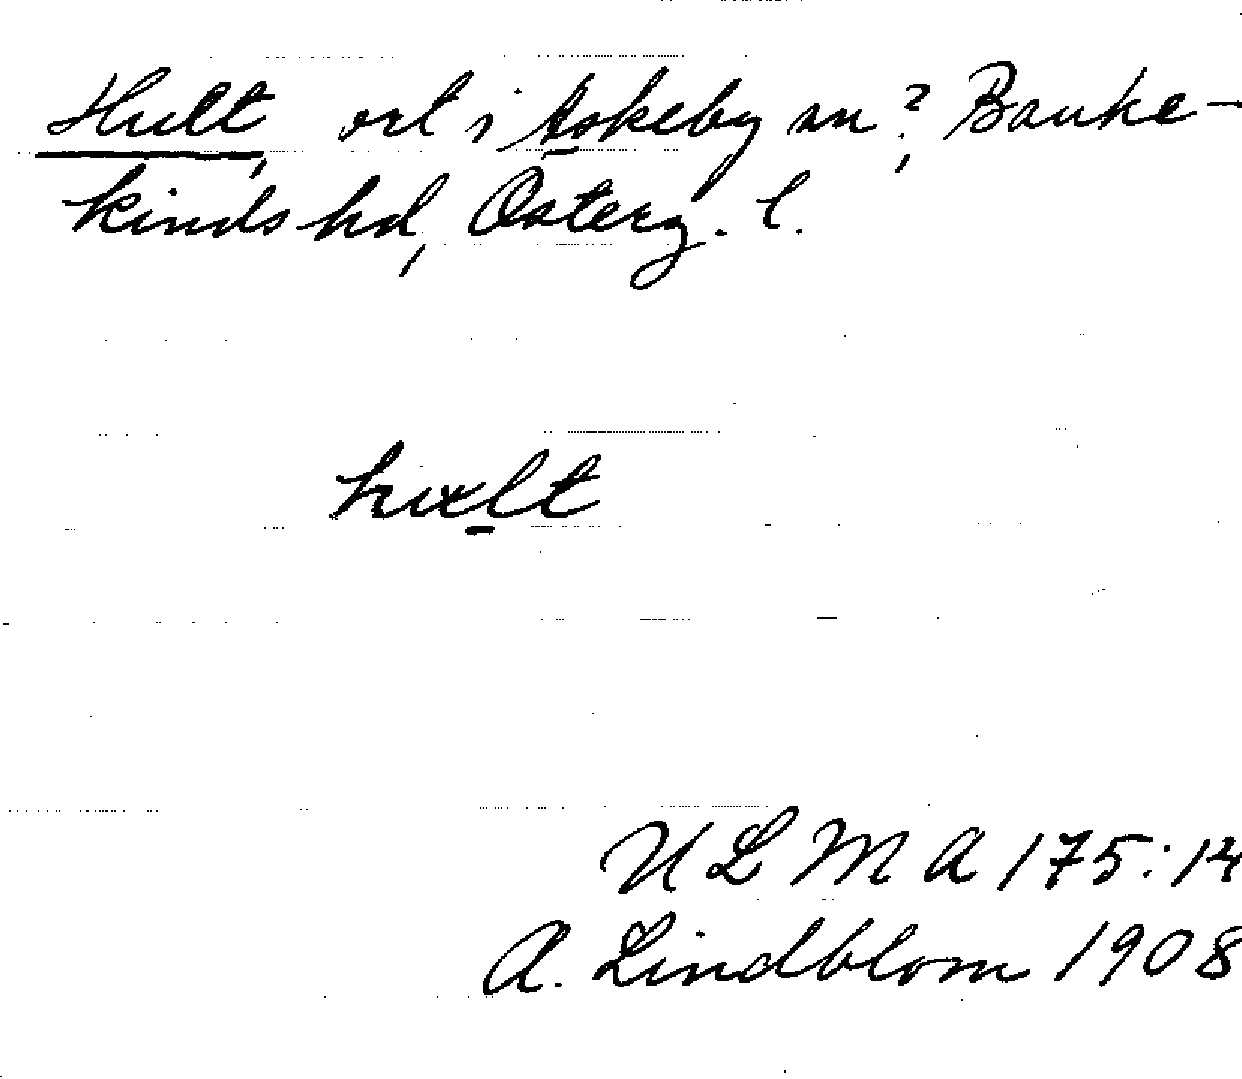 Hult, ort i Askeby sn?, Banke-
kinds hd, Österg. l.
hult
ULMA 175:14
A. Lindblom 1908